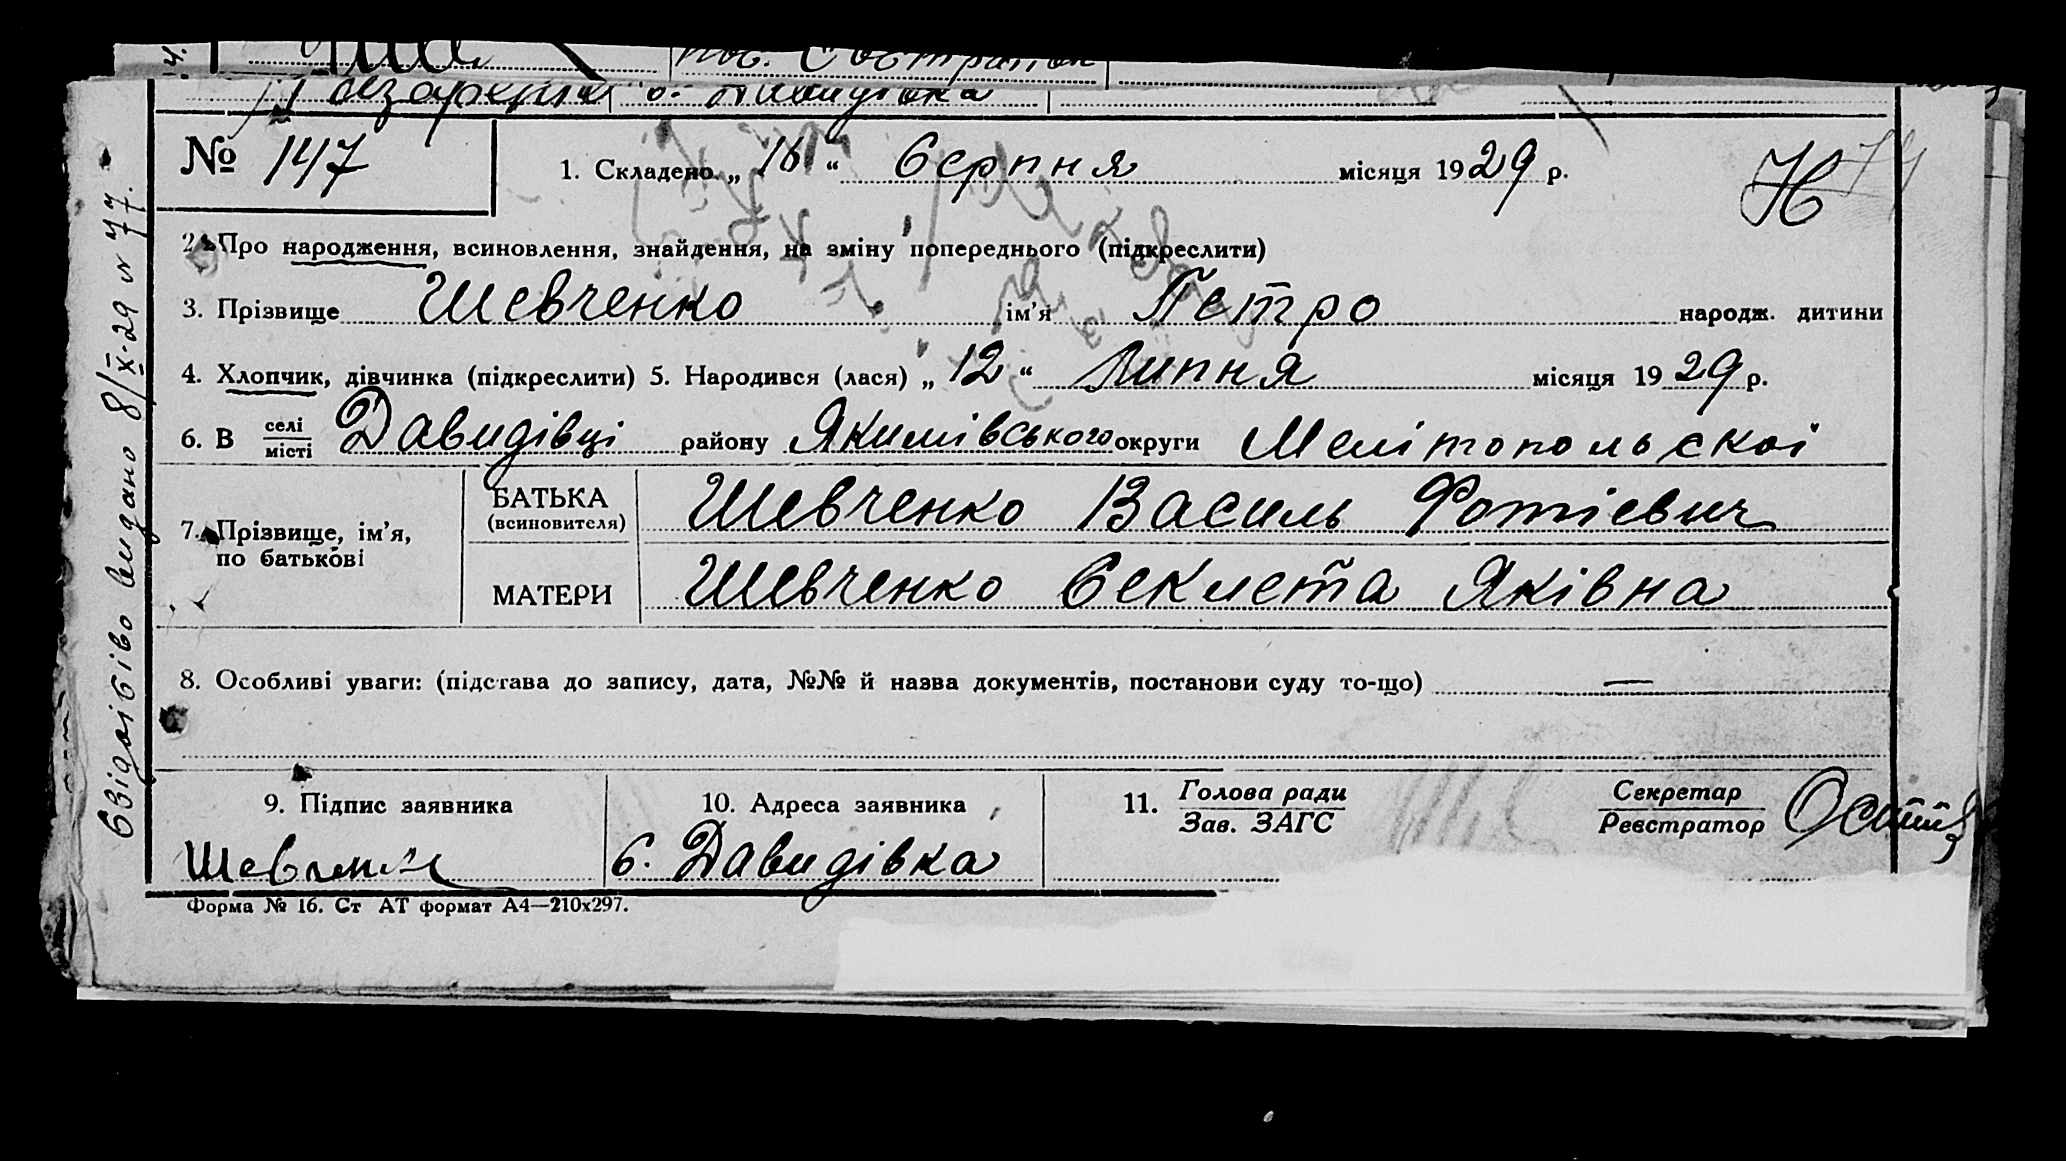 с. Давидівка
№ 147
1. Складено „ 16 “ Серпня місяця 1929 р.
Н
2. Про народження, всиновлення, знайдення, на зміну попереднього (підкреслити)
3. Прізвище Шевченко ім’я Петро народж. дитини
4. Хлопчик, дівчинка (підкреслити) 5. Народився (лася) „ 12 “ Липня місяця 1929 р.
6. В селі/місті Давидівці району Якимівського округи Мелітопольскої
7. Прізвище, ім’я,
по батькові
БАТЬКА
(всиновителя)
Шевченко Василь Фотієвич
МАТЕРИ
Шевченко Секлета Яківна
8. Особливі уваги: (підстава до запису, дата, №№ й назва документів, постанови суду то-що) —
9. Підпис заявника
Шевченко
10. Адреса заявника
с. Давидівка
11. Голова ради
Зав. ЗАГС
Секретар
Реєстратор
Форма № 16. Ст АТ формат А4—210х297.
Свідоцтво видано 8/IX-29 № 77.